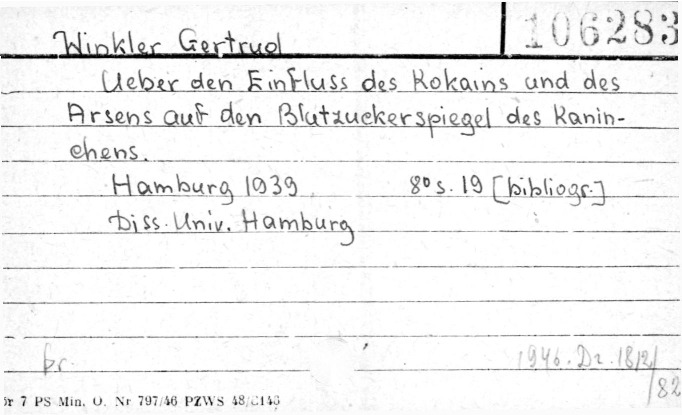 Winkler Gertrud 106283
Ueber den Einfluss des Kokains und des
Arsens auf den Blutzuckerspiegel des Kanin-
chens.
Hamburg 1939 8° s. 19 [bibliogr.]
Diss. Univ. Hamburg
br. 1946. Dr. 1812/
/82
ór 7 PS Min. O. Nr 797/46 PZWS 48/C143